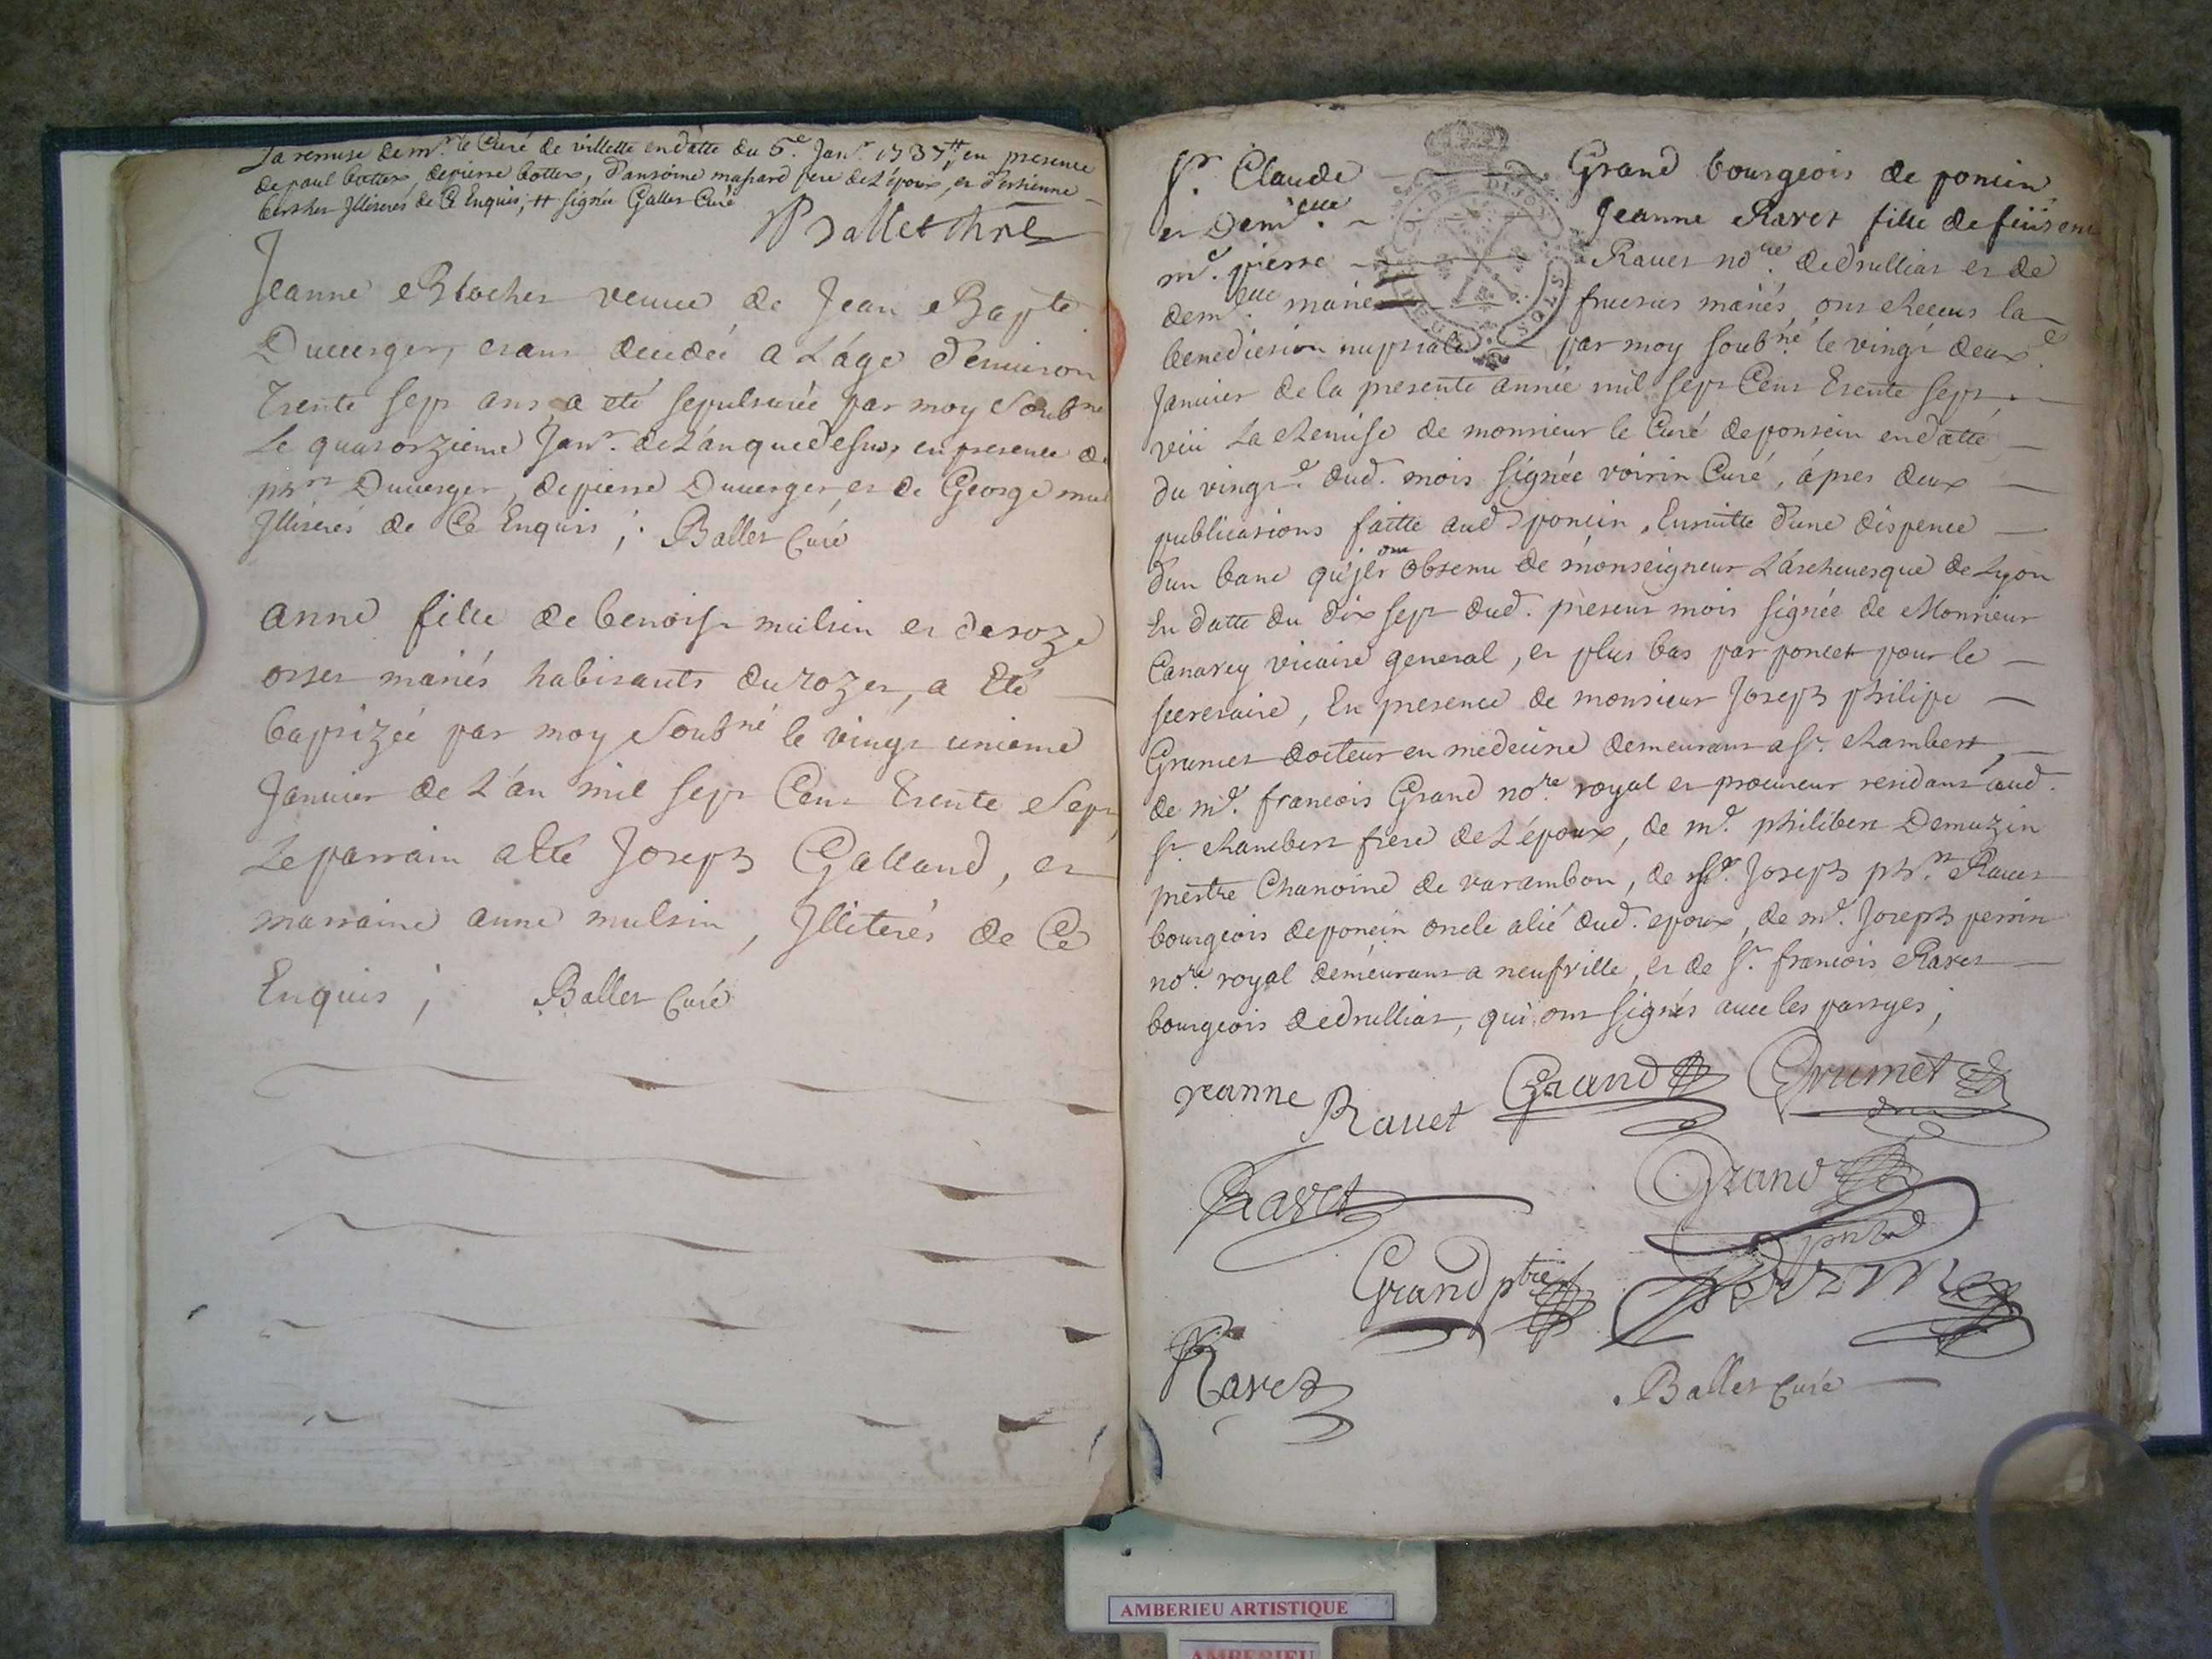 La remise de mr. le Curé de villette en datte du 5e. Janr. 1737 #, en presence
de paul bottex, de pierre bottex, d'antoine massard pere de L'époux, et d'estienne
berthet Illiterés de Ce Enquis, # signée Gallet Curé
Jeanne Blochet veuve de Jean Bapte
Duverger, etant decedée a L'áge d'environ
Trente sept ans a eté sepulturée par moy soubné
Le quatorzieme Janr. de L'an que desus, en presence de
Duverger, de pierre Duverger, et de George
Illiterés de Ce Enquis ; Ballet Curé
Anne fille de benoist multin et de roze
orset mariés habitants du rozet, a Eté
baptizée par moy soubné le vingt unieme
Janvier de L'án mil sept Cent Trente Sept
Le parrain a Eté Joseph Galland, et
marraine anne multin, Illiterés de Ce
Enquis ; Ballet Curé
Sr. Claude Grand bourgeois de poncin
et Demlle. Jeanne Ravet fille de feu
me. pierre Ravet nore. de druilliat et de
demlle marie fructus mariés, ont Receus la
benediction nuptiale par moy soubné le vingt deuxe.
Janvier de la presente année mil sept Cent Trente sept
veü La Remise de monsieur le Curé de ponsin en datte
du vingte. dud. mois signée voirin Curé, ápres deux
publications faitte aud. poncin, Ensuitte d'une dispence
d'un banc qu'jls ont obtenu de mónseigneur L'árchevesque de Lyon
En datte du dix sept dud. present mois signée de Monsieur
Canavey vicaire general, et plus bas par poncet pour le
secretaire, En presence de monsieur Joseph philipe
Grumet docteur en medecine demeurant a St. Rambert,
de me. francois Grand nore. royal et procureur residant aud.
St. Rambert frere de L'époux, de me. philibert Demuzin
prestre Chanoine de varambon, de Sr. Joseph Ravet
bourgeois de poncin oncle alié dud. epoux, de me. Joseph perrin
nore. royal demeurant a neufville, et de Sr. francois Ravet
bourgeois de druilliat, qui ont signés avec les partyes ;
jeanne Ravet Grand Grumet
Ravet Grand
Grand ptre perrin
Ravet
Ballet Curé
DE DIJON
DEUX SOLS
AMBERIEU ARTISTIQUE
AMBERIEU